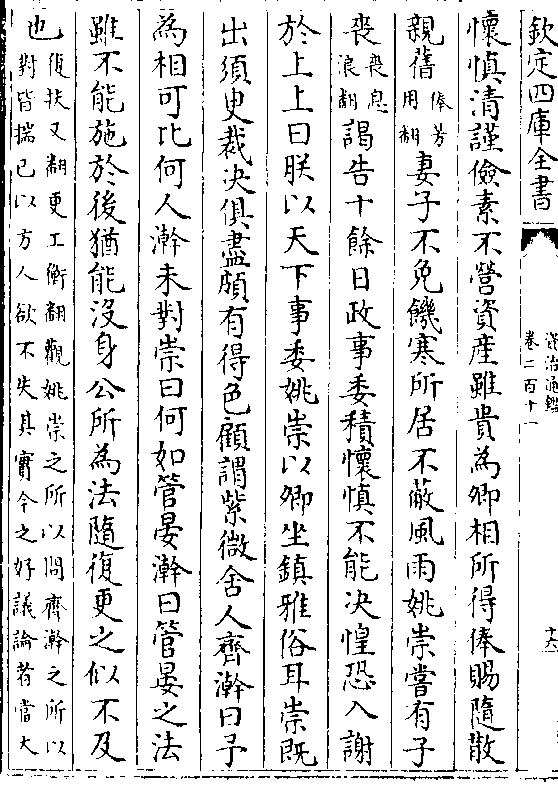 欽定四庫全書
資治通鑑
卷二百十一
十六
懷慎清謹儉素不營資産雖貴為卿相所得俸賜隨散
親舊俸芳用翻妻子不免饑寒所居不蔽風雨姚崇嘗有子
喪喪息浪翻謁告十餘日政事委積懷慎不能决惶恐入謝
於上上曰朕以天下事委姚崇以卿坐鎮雅俗耳崇既
出須臾裁决俱盡頗有得色顧謂紫微舍人齊澣曰予
為相可比何人澣未對崇曰何如管晏澣曰管晏之法
雖不能施於後猶能沒身公所為法隨復更之似不及
也復扶又翻更工衡翻觀姚崇之所以問齊澣之所以對皆揣已以方人欲不失其實今之好議論者當大